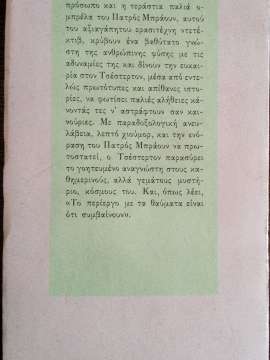 πρόσωπο και η τεράστια παλιά ο-
μπρέλα του Πατρός Μπράουν, αυτού
του αξιαγάπητου ερασιτέχνη ντετέ-
κτιβ, κρύβουν ένα βαθύτατο γνώ-
στη της ανθρώπινης φύσης με τις
αδυναμίες της και δίνουν την ευκαι-
ρία στον Τσέστερτον, μέσα από εντε-
λώς πρωτότυπες και απίθανες ιστο-
ρίες, να φωτίσει παλιές αλήθειες κά-
νοντάς τες ν' αστράφτουν σαν και-
νούριες. Με παραδοξολογική ανευ-
λάβεια, λεπτό χιούμορ, και την ενό-
ραση του Πατρός Μπράουν να πρω-
τοστατεί, ο Τσέστερτον παρασύρει
το γοητευμένο αναγνώστη στους κα-
θημερινούς, αλλά γεμάτους μυστή-
ριο, κόσμους του. Και, όπως λέει,
«Το περίεργο με τα θαύματα είναι
ότι συμβαίνουν».